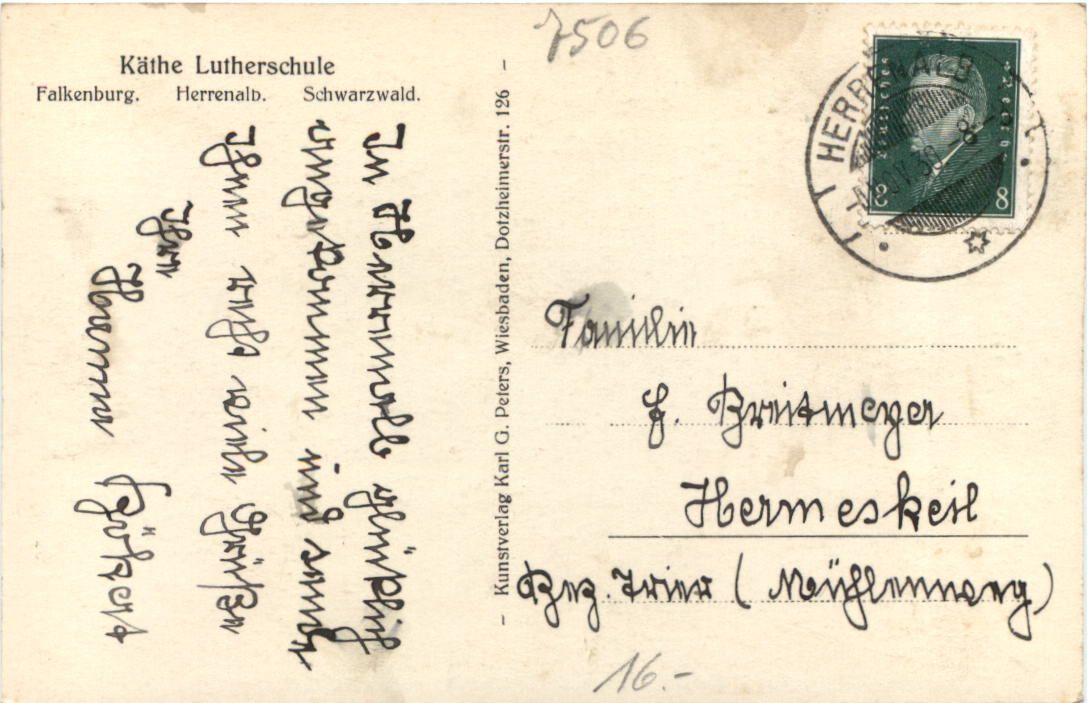 7506
Käthe Lutherschule
Falkenburg. Herrenalb. Schwarzwald.
In Herrenalb glücklich
angekommen
Ihnen recht viele Grüße
Ihre
Hanna
– Kunstverlag Karl G. Peters, Wiesbaden, Dotzheimerstr. 126 –
HERRENALB
Deutsches Reich
8 8
Familie
H. Breitmeyer
Hermeskeil
Bez. Trier (Mühlenweg)
16.-